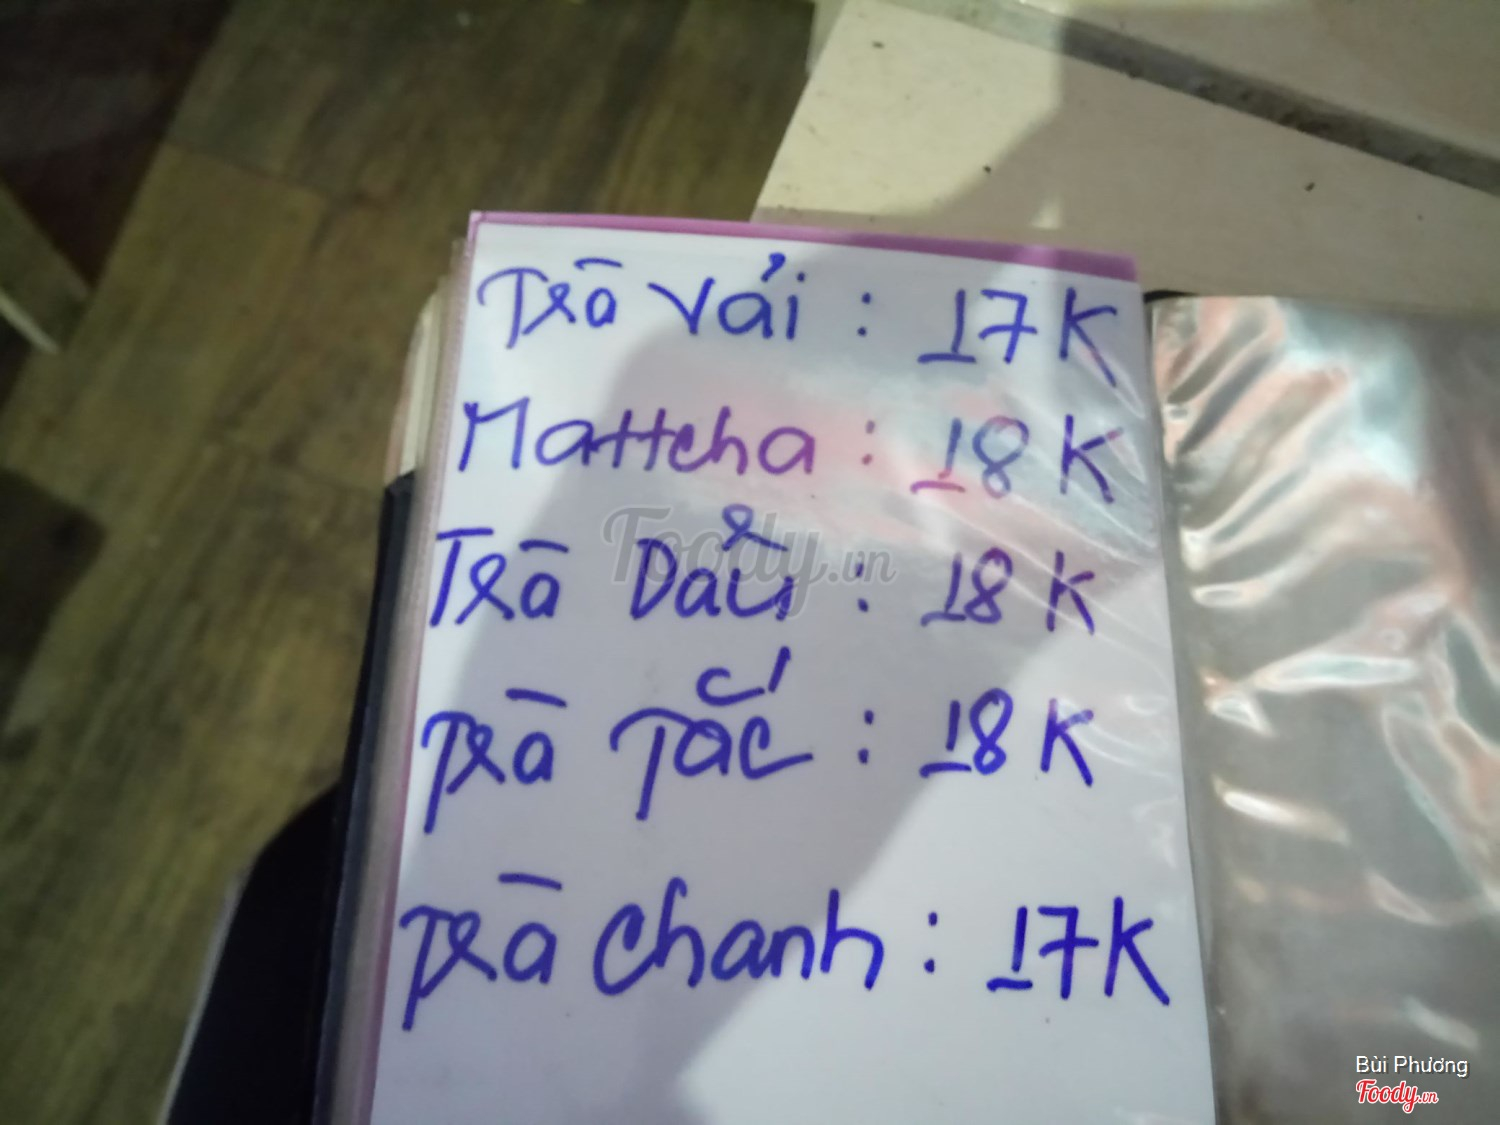 Trà Vải : 17K
Mattcha : 18K
Foody.vn
Trà Dâu : 18K
Trà Tắc : 18K
Trà Chanh : 17K
Bùi Phương
Foody.vn